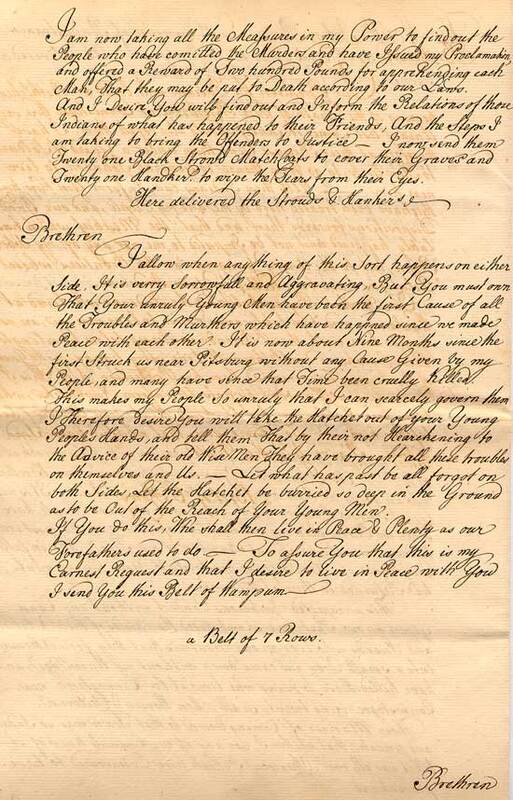 I am now taking all the Measures in my Power to find out the
People who have comitted the Murders and have Issued my Proclamation,
and offered a Reward of Two hundred Pounds for apprehending each
Man, That they may be put to Death according to our Laws.
And I Desire You will find out and Inform the Relations of those
Indians of what has happened to their Friends, And the Steps I
am taking to bring the Offenders to Justice — I now send them
Twenty one Black Stroud Matchcoats to cover their Graves and
Twenty one Handkers. to wipe the Tears from their Eyes.
Here delivered the Strouds & Hankers.
Brethren
I allow when anything of this Sort happens on either
Side, It is verry Sorrowfull and Aggravating, But You must own
That Your unruly Young Men have been the first Cause of all
the Troubles and Murthers which have happned since we made
Peace with each other. It is now about Nine Months since the
first Struck us near Pitsburg without any Cause Given by my
People, and many have since that Time been cruelly Killed.
This makes my People so unruly that I can scarcely govern them
I Therefore desire You will take the Hatchet out of Your Young
Peoples Hands, and tell them That by their not Hearkening to
the Advice of their old Wise Men They have brought all these troubles
on themselves and Us. — Let what has past be all forgot on
both Sides, Let the Hatchet be burried so deep in the Ground
as to be Out of the Reach of Your Young Men.
If You do this, Whe shall then live in Peace & Plenty as our
Forefathers used to do — To assure You that this is my
Earnest Request and that I desire to live in Peace with You
I send You this Belt of Wampum —
a Belt of 7 Rows.
Brethren